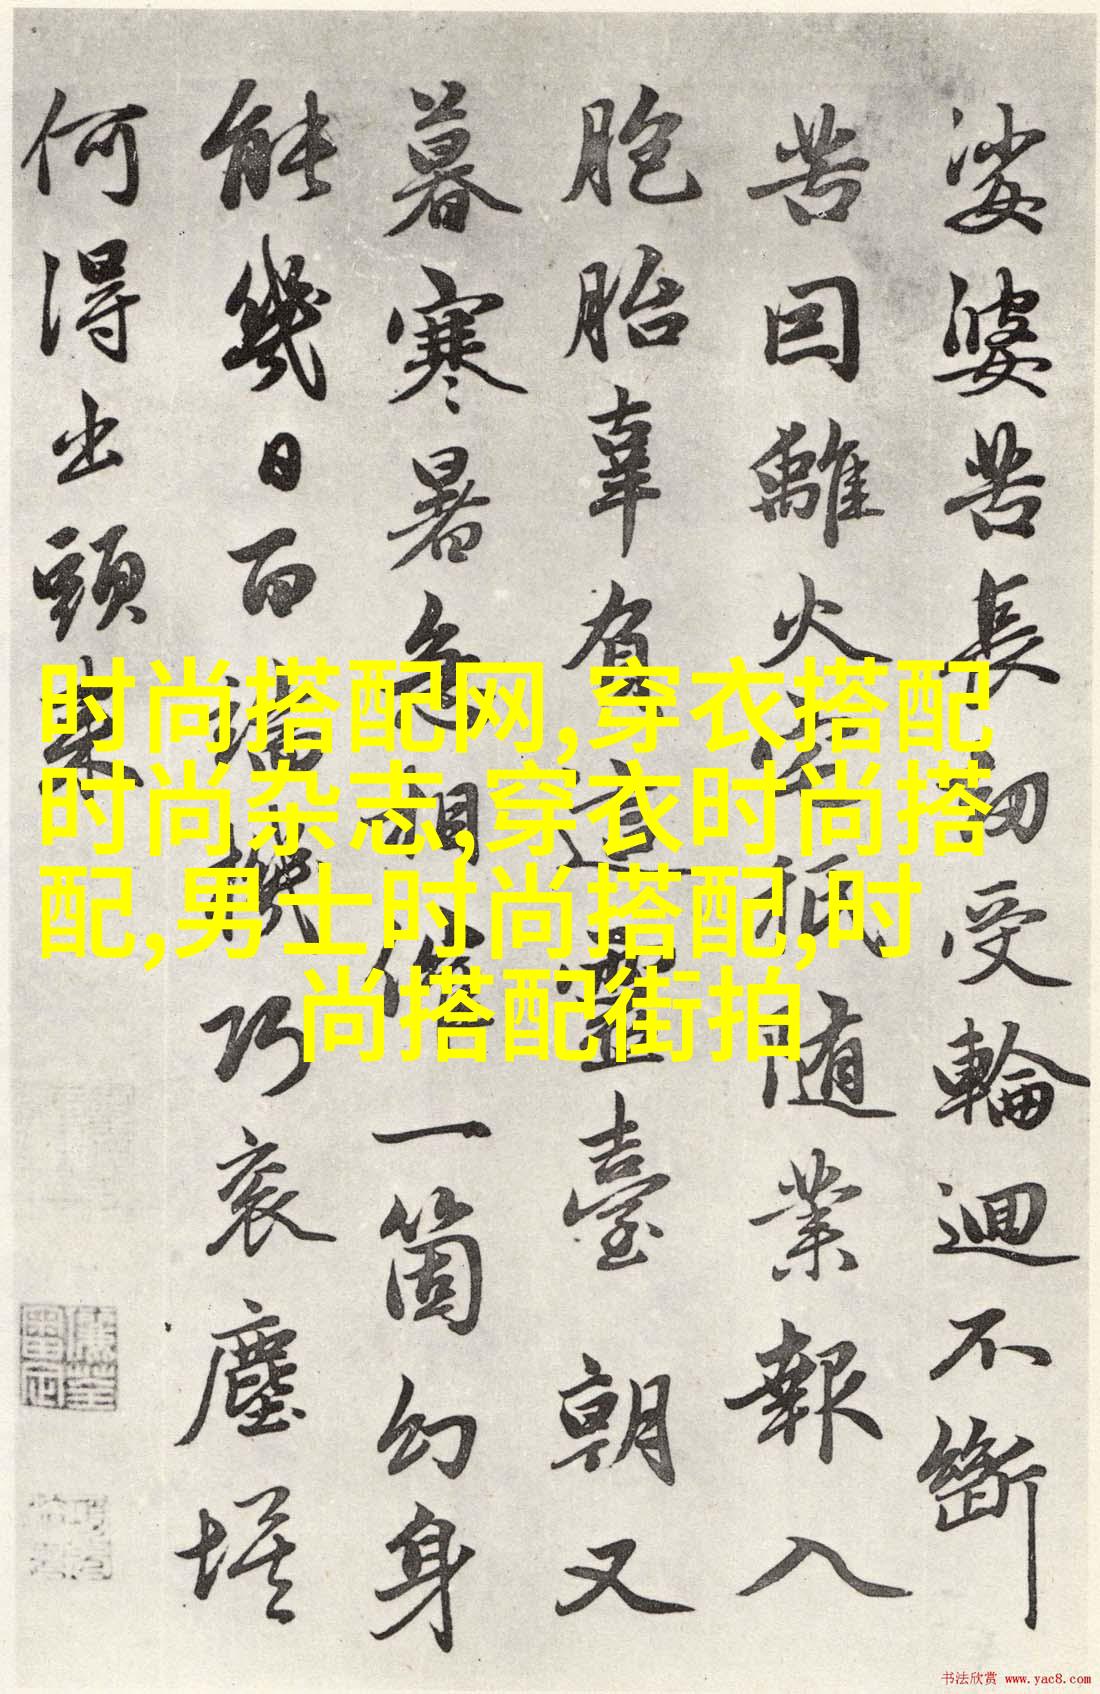 娑婆苦長劫受輪迴不斷
苦囙離火宅秖随業報入
胞胎辜負這靈臺朝又
暮寒暑急相催一箇幻身
能幾日百端機巧衮塵埃
何得出頭来
时尚搭配网,穿衣搭配
时尚杂志,穿衣时尚搭
配,男士时尚搭配,时
尚搭配街拍
书法欣赏 www.yac8.com